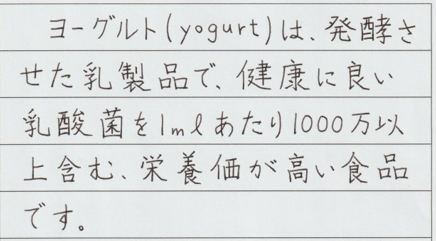 ヨーグルト(yogurt)は、発酵さ
せた乳製品で、健康に良い
乳酸菌を1mlあたり1000万以
上含む、栄養価が高い食品
です。